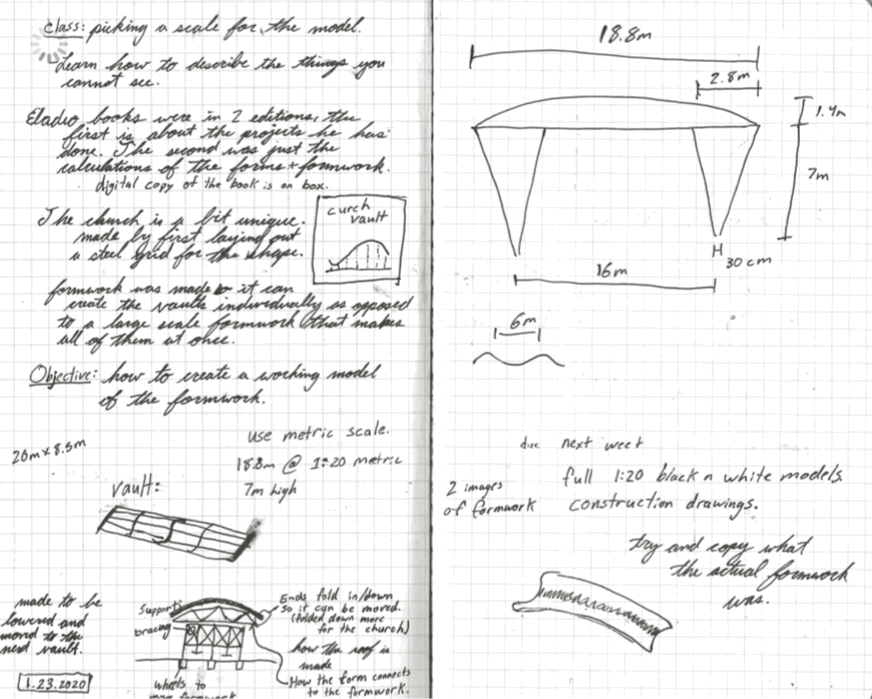 Class: picking a scale for the model.
Learn how to describe the things you
cannot see.
Eladio books were in 2 editions, the
first is about the projects he has
done. The second was just the
calculations of the forms + formwork.
digital copy of the book is on box.
The church is a bit unique.
made by first laying out
a steel grid for the shape.
curch
vault
formwork was made so it can
create the vaults individually as opposed
to a large scale formwork that makes
all of them at once.
Objective: how to create a working model
of the formwork.
20m x 8.5m
use metric scale.
18.8m @ 1:20 metric
7m high
vault:
made to be
lowered and
moved to the
next vault.
1.23.2020
Supports
bracing
wheels to
move formwork
Ends fold in/down
so it can be moved.
(folded down more
for the church)
how the roof is
made
How the form connects
to the formwork.
18.8m
2.8m
1.4m
7m
30cm
16m
6m
due next week
2 images
of formwork
full 1:20 black n white models.
construction drawings.
try and copy what
the actual formwork
was.